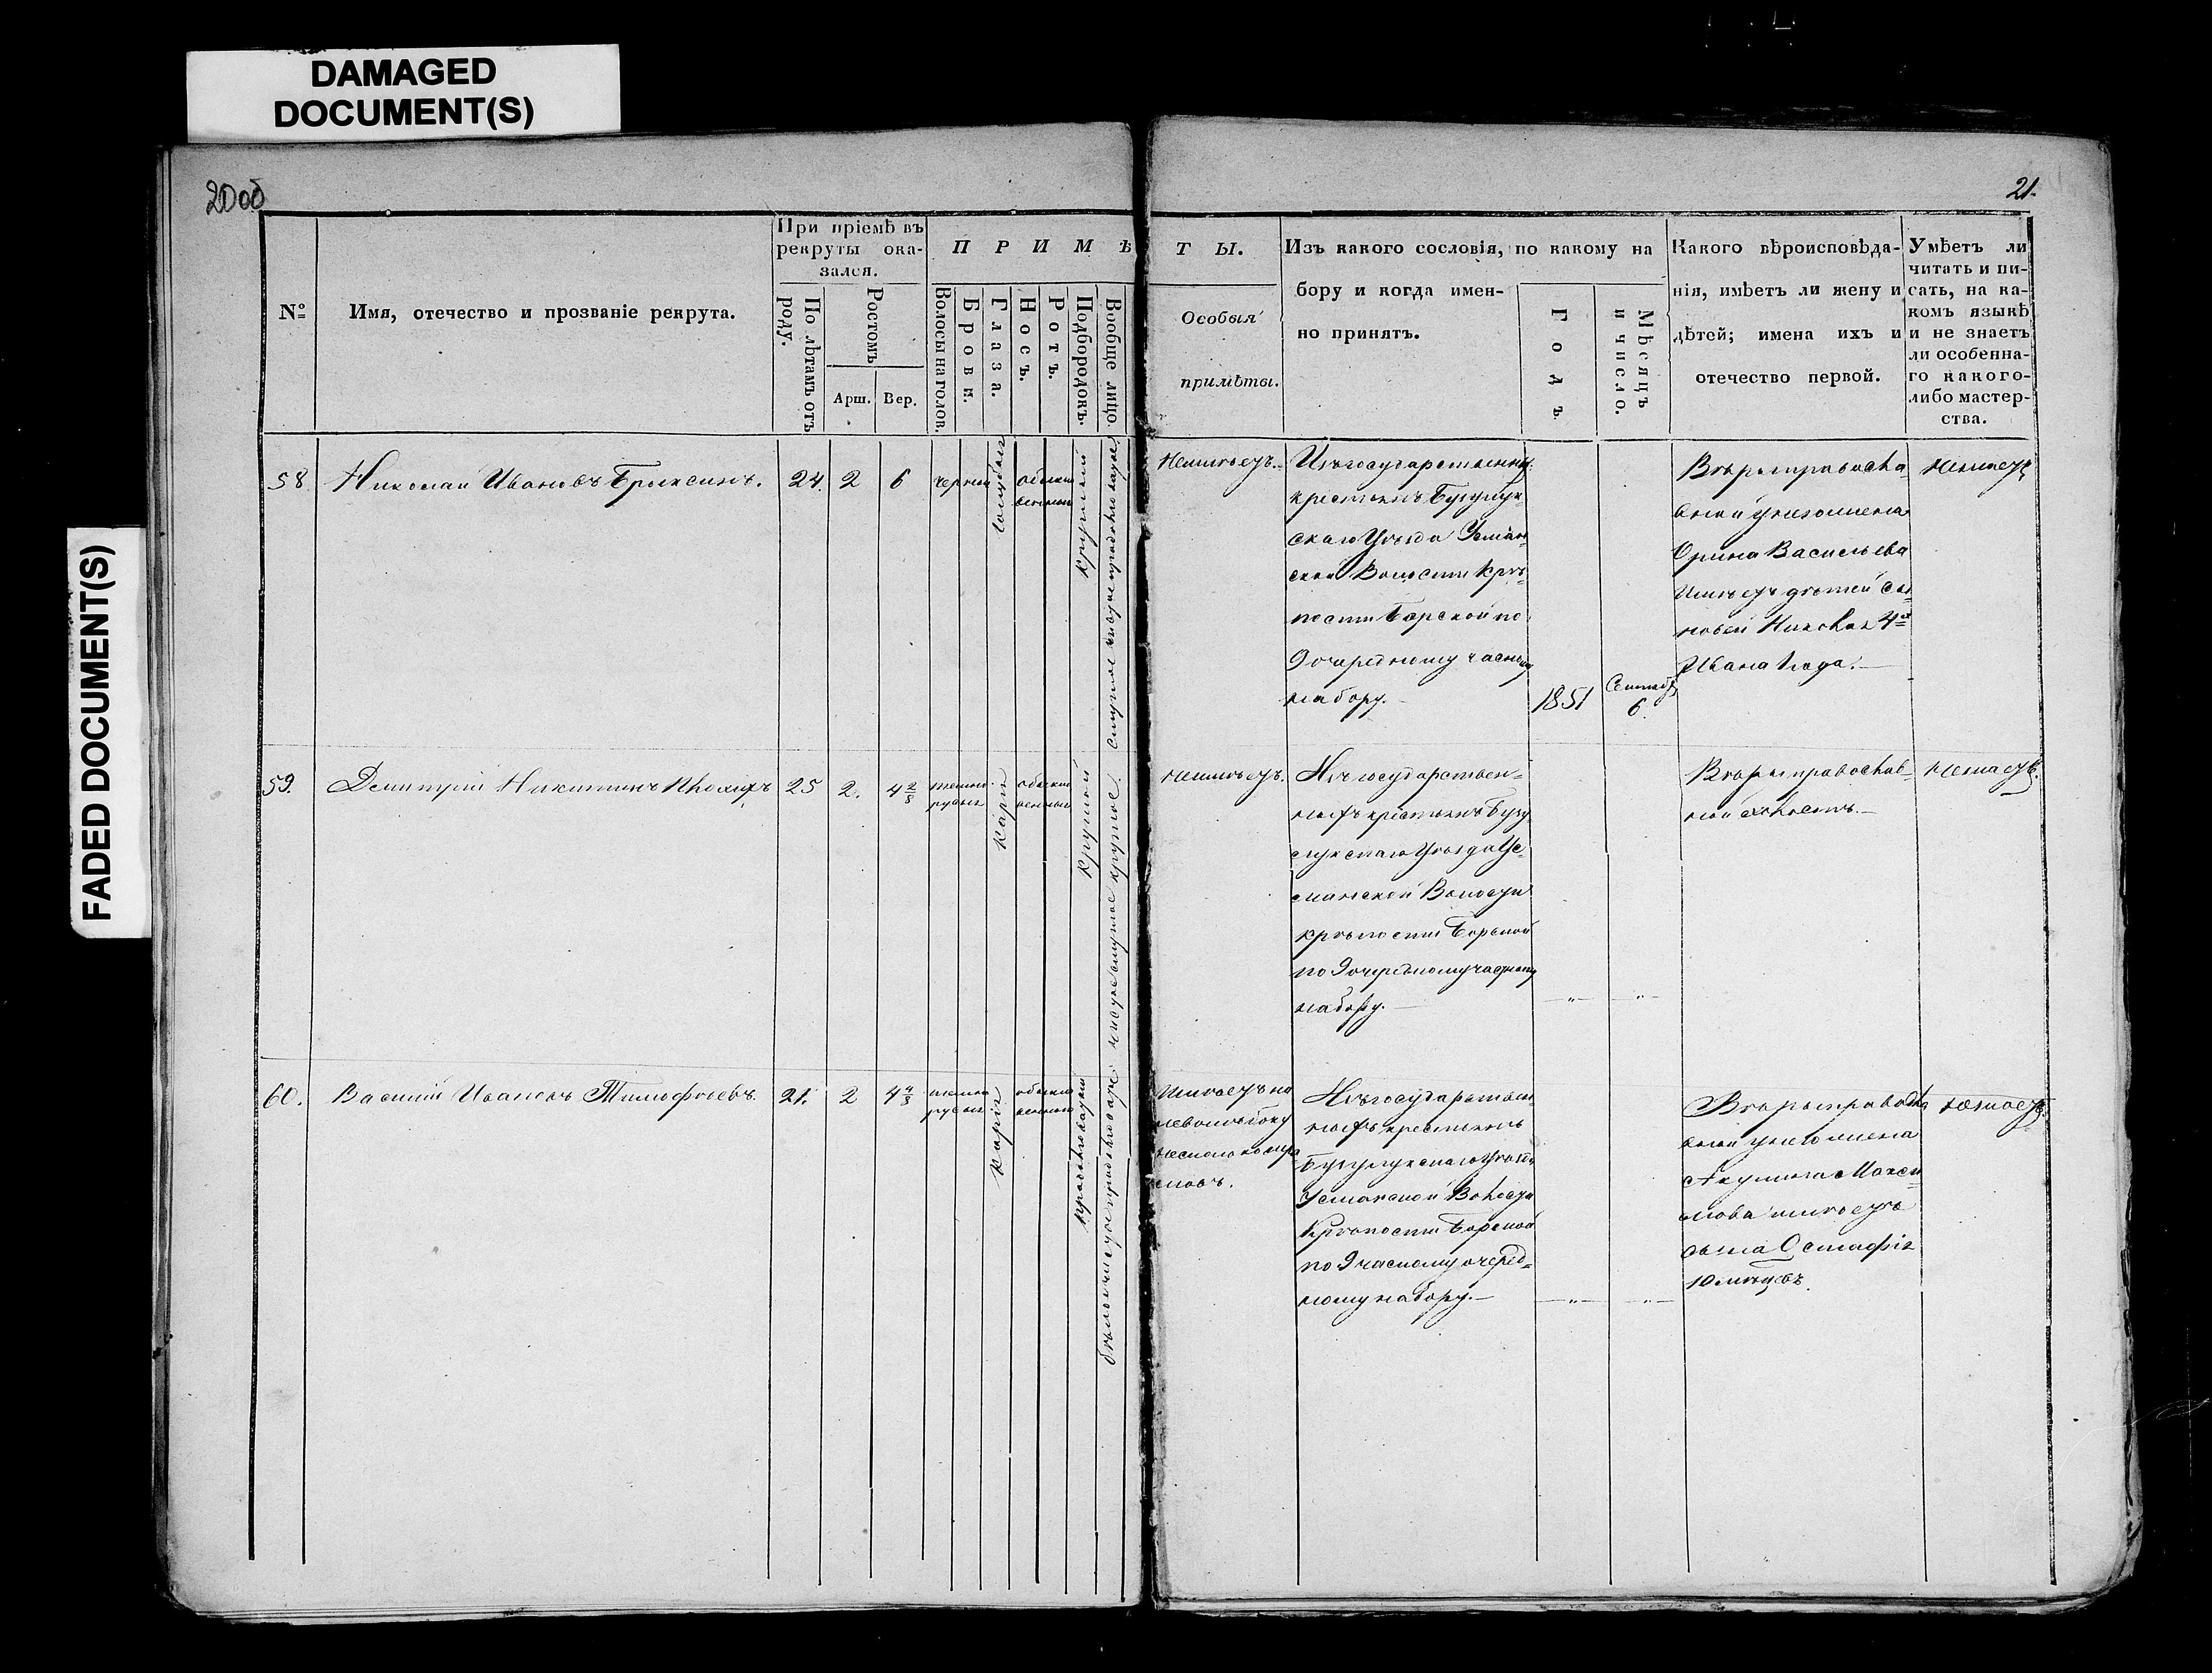 DAMAGED
DOCUMENT(S)
FADED DOCUMENT(S)
20 об
21.
№
Имя, отечество и прозваніе рекрута.
При пріемѣ въ
рекруты ока-
зался.
По лѣтамъ отъ
роду.
Ростомъ
Арш.
Вер.
П Р И М Ѣ
Т Ы.
Волосы на голов.
Брови.
Глаза.
Носъ.
Ротъ.
Подбородокъ.
Вообще лицо.
Особыя
примѣты.
Изъ какого сословія, по какому на
бору и когда имен-
но принятъ.
Годъ.
Мѣсяцъ
и число.
Какого вѣроисповѣда-
нія, имѣетъ ли жену и
дѣтей; имена ихъ и
отечество первой.
Умѣетъ ли
читать и пи-
сать, на ка-
комъ языкѣ
и не знаетъ
ли особенна-
го какого-
либо мастер-
ства.
58.
Николай Ивановъ
24.
2
6
черные
голубые
обыкно
венные
круглый
Неимѣетъ.
Изъ государственныхъ
крестьянъ Бузулук
скаго Уѣзда Усман
ской Волости Крѣ-
пости Борской по
9 очередному частному
набору.
1851
Сентяб
6.
Вѣры правосла-
вной у него жена
Орина Васильева
Имѣетъ дѣтей сы
новей 4хъ
Ивана 1 года.
Неумѣетъ
59.
Дмитрій Никитинъ
25
2.
4 2/8
темно
русые
каріе
обыкно
венные
круглый
Неимѣетъ.
Изъ государствен-
ныхъ крестьянъ Бузу
лукскаго Уѣзда Ус-
манской Волости
крѣпости Борской
по 9 очередному частному
набору.
„
„
Вѣры православ-
ной холостъ.
Неумѣетъ.
60.
Василій Ивановъ Тимофѣевъ.
21.
2
4 4/8
темно
русые
каріе
обыкно
венные
Имѣетъ на
левомъ боку
несколько
Изъ государствен-
ныхъ крестьянъ
Бузулукскаго Уѣзда
Усманской Волости
Крѣпости Борской
по 9 частному очеред-
ному набору.
„
„
Вѣры правосла
вной у него жена
Акулина Макси
мова имѣетъ
сына
10 мѣсяцовъ.
Неумѣетъ.